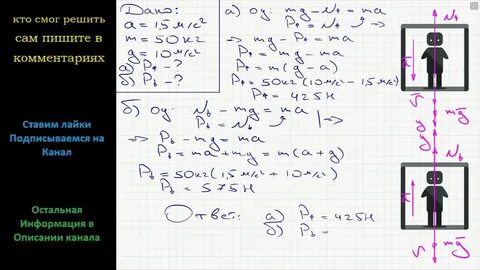 кто смог решить
сам пишите в
комментариях
Ставим лайки
Подписываемся на
Канал
Остальная
Информация в
Описании канала
Дано:
a = 1,5 м/с²
m = 50 кг
g = 10 м/с²
а) P₁ - ?
б) P₂ - ?
а) oy: mg - N₁ = ma
P₁ = N₁
=> mg - P₁ = ma
P₁ = mg - ma
P₁ = m(g - a)
P₁ = 50кг(10м/с² - 1,5м/с²)
P₁ = 425Н
б) oy: N₂ - mg = ma
P₂ = N₂ | =>
=> P₂ - mg = ma
P₂ = ma + mg = m(a + g)
P₂ = 50кг(1,5м/с² + 10м/с²)
P₂ = 575Н
Ответ: а) P₁ = 425Н
б) P₂ =
mg
mg